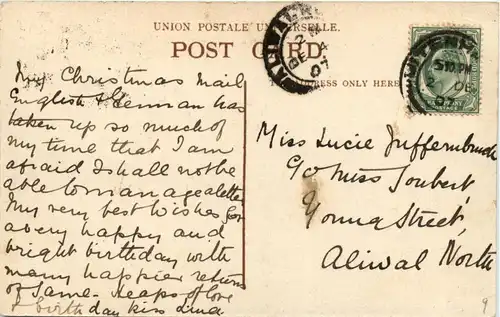 UNION POSTALE UNIVERSELLE.
POST CARD
ADDRESS ONLY HERE
My Christmas mail
English & German has
taken up so much of
my time that I am
afraid I shall not be
able to manage a letter
My very best wishes for
a very happy and
bright birthday with
many happier returns
of same - heaps of love
& birthday kiss
Miss Lucie
c/o Miss Joubert
Young Street,
Aliwal North
POSTAGE
9